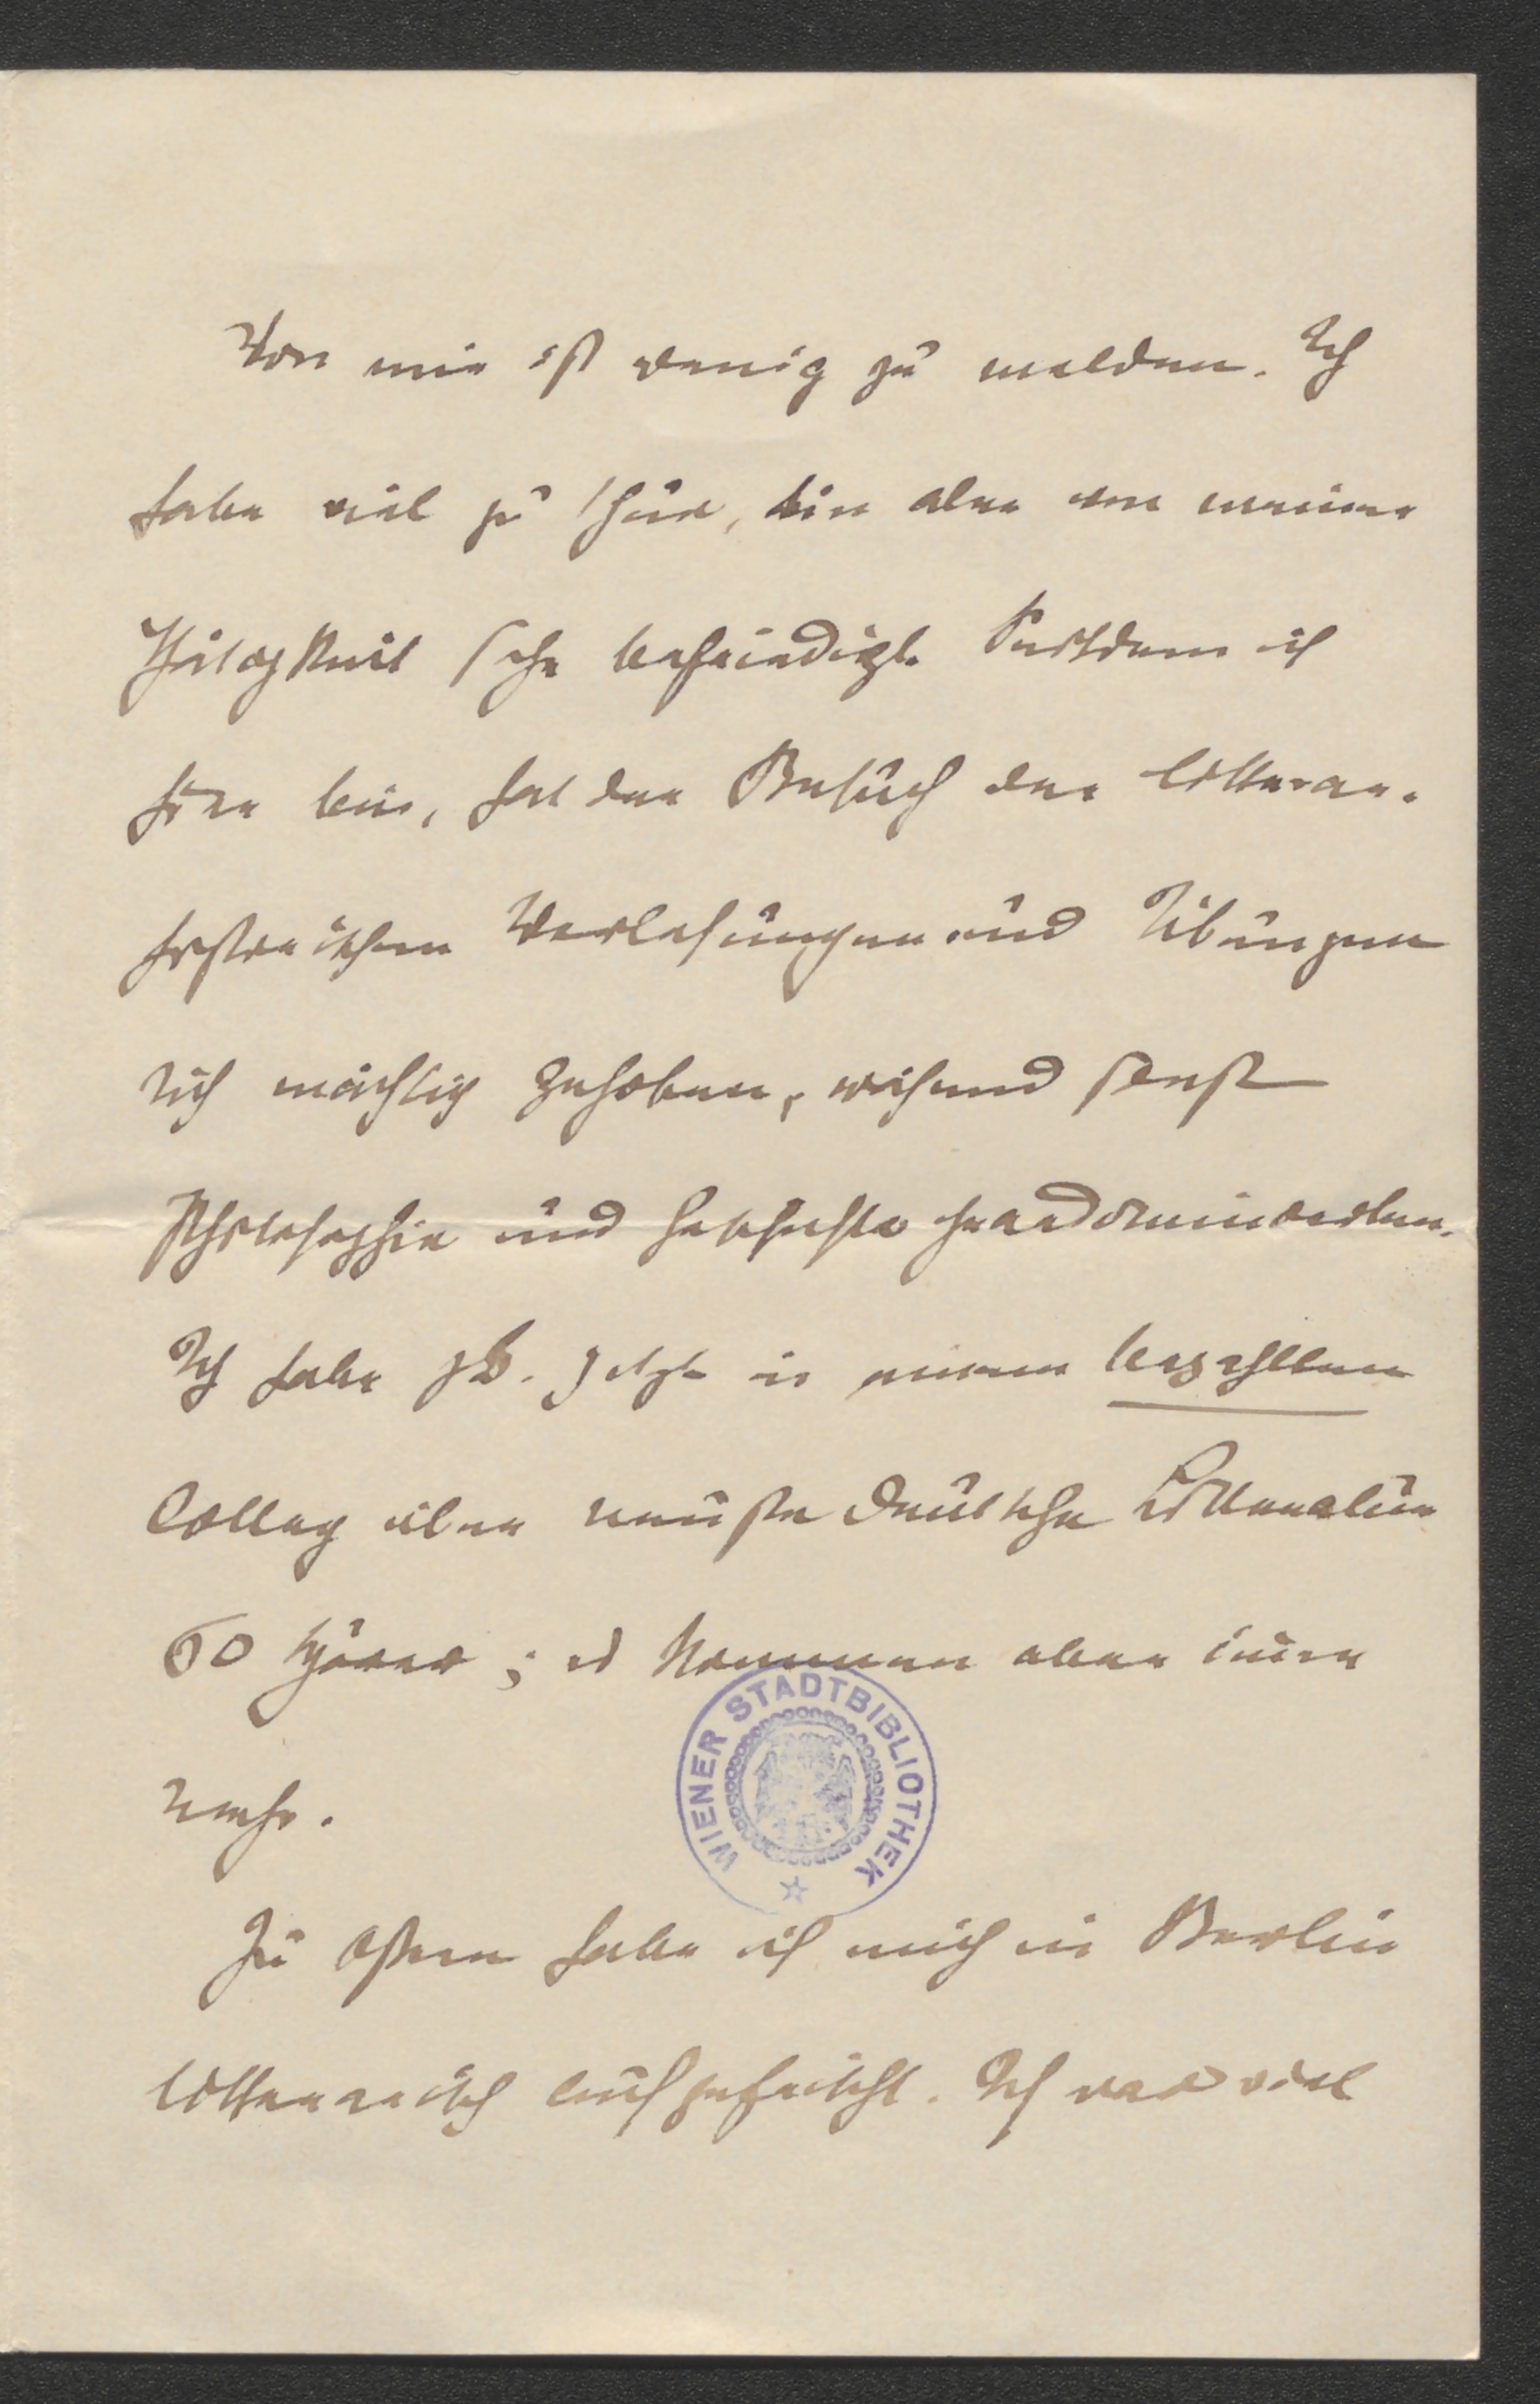 Von mir ist wenig zu melden. Ich
habe viel zu thun, bin aber von meiner
Thätigkeit sehr befriedigt. Seitdem ich
hier bin, hat der Besuch der litterar-
historischen Vorlesungen und Übungen
sich mächtig gehoben, während sonst
Philosophie und Geschichte praedominierten.
Ich habe zB. jetzt in einem bezahlten
Colleg über neuste deutsche Litteratur
60 Hörer; es kommen aber immer
mehr.
WIENER STADTBIBLIOTHEK
Zu Ostern habe ich mich in Berlin
litterarisch aufgefrischt. Ich war viel